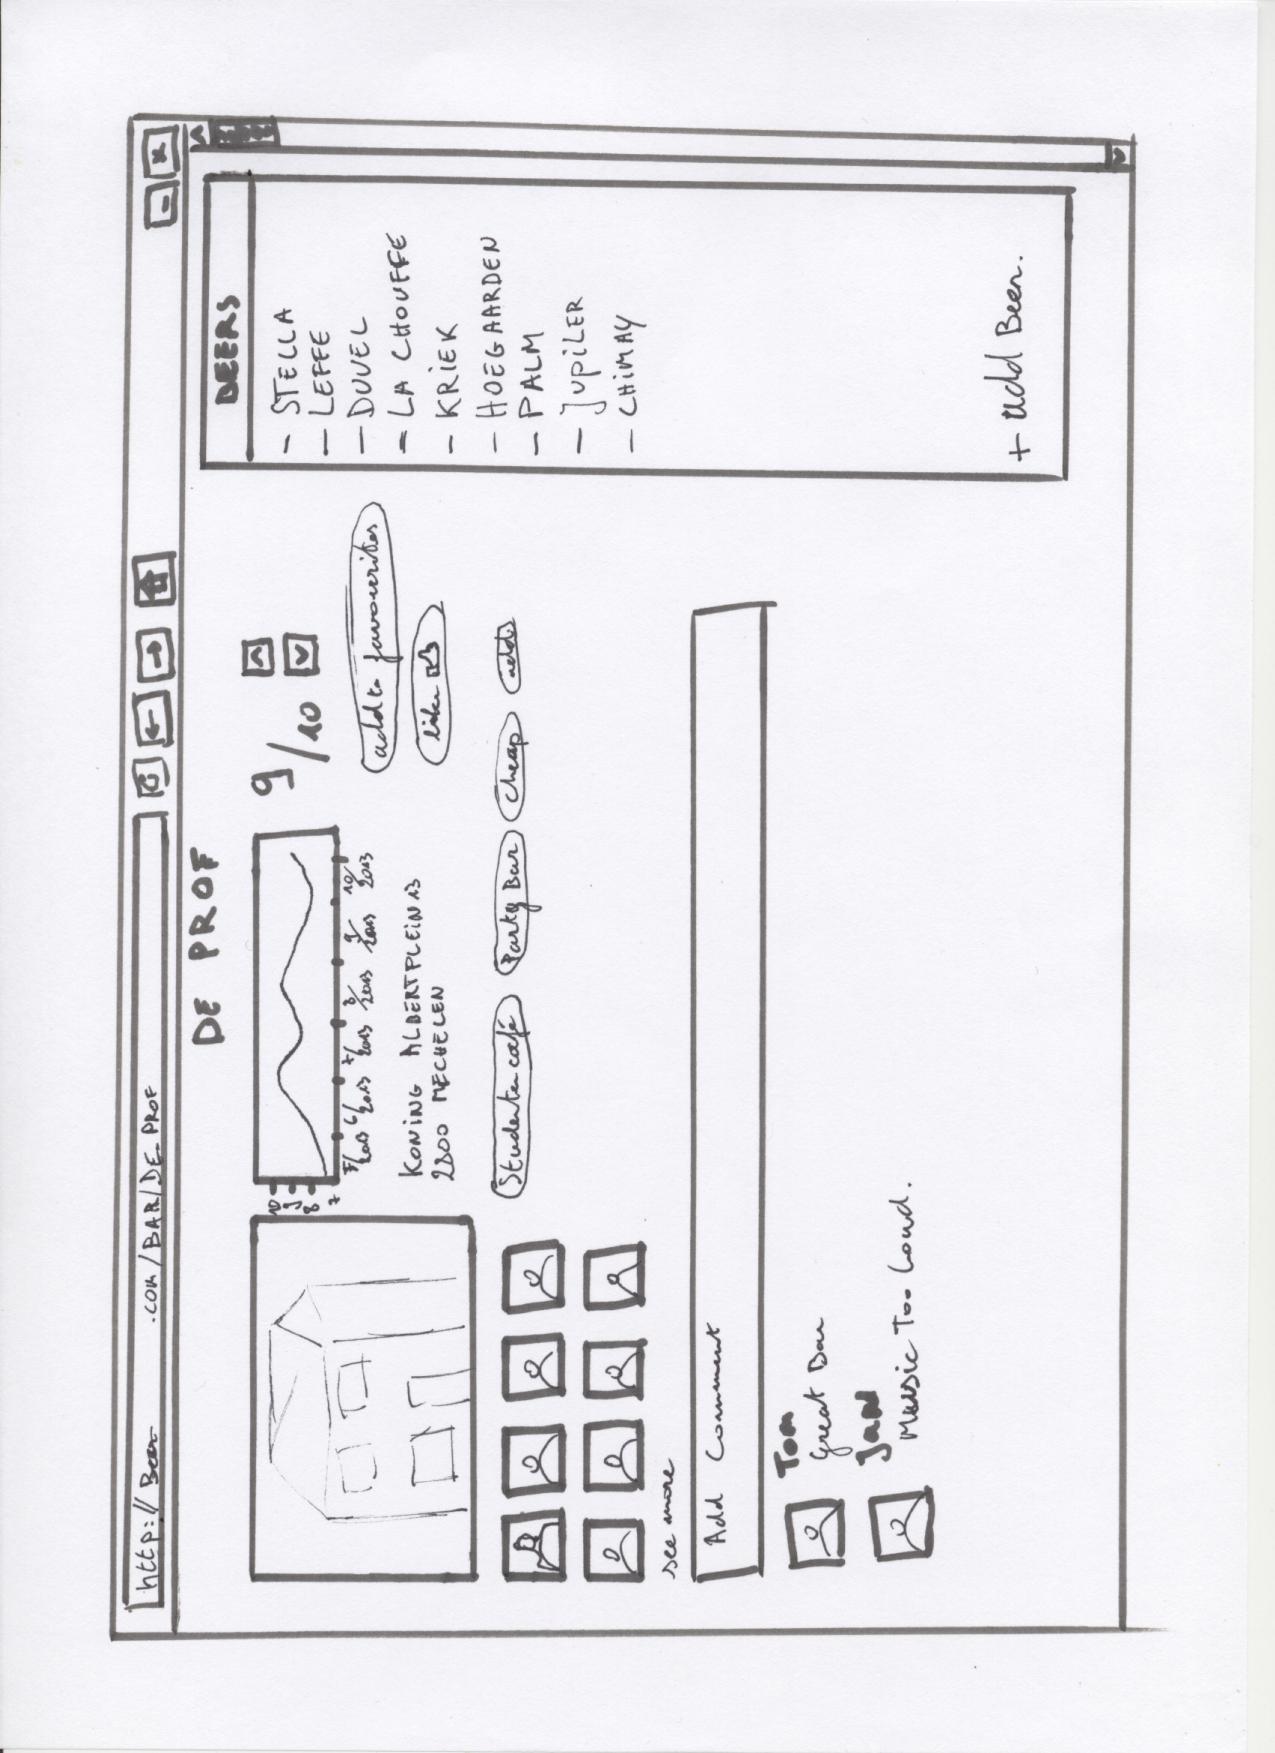 http:// Beer .com/BAR/DE_PROF
DE PROF
10
9
8
7
5/2013 6/2013 7/2013 8/2013 9/2013 10/2013
9/10
KONING ALBERTPLEIN 13
2800 MECHELEN
add to favourites
like
Studenten café
Party Bar
cheap
add
see more
Add Comment
Tom
Great Bar
Jan
Music Too Loud.
BEERS
- STELLA
- LEFFE
- DUVEL
- LA CHOUFFE
- KRIEK
- HOEGAARDEN
- PALM
- JUPiLER
- CHiMAY
+ Add Beer.